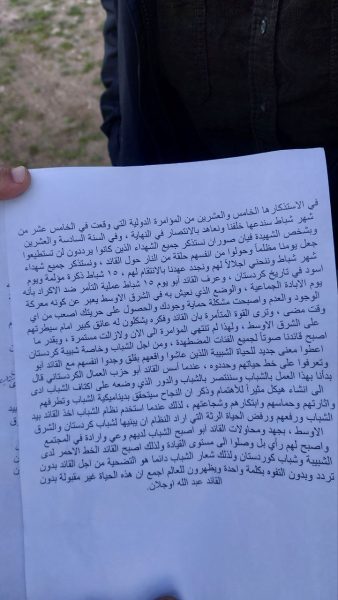 في الاستذكارها الخامس والعشرين من المؤامرة الدولية التي وقعت في الخامس عشر من
شهر شباط سندعها خلفنا ونعاهد بالانتصار في النهاية ، وفي السنة السادسة والعشرين
وبشخص الشهيدة فيان صوران نستذكر جميع الشهداء الذين كانوا يرددون لن تستطيعوا
جعل يومنا مظلماً وحولوا من انفسهم حلقة من النار حول القائد ، ونستذكر جميع شهداء
شهر شباط وننحني اجلالاً لهم ونجدد عهدنا بالانتقام لهم ، ١٥ شباط ذكرة مؤلمة ويوم
اسود في تاريخ كردستان ، وعرف القائد أبو يوم ١٥ شباط عملية التأمر ضد الاكراد بأنه
يوم الابادة الجماعية ، والوضع الذي نعيش به في الشرق الاوسط يعبر عن كونه معركة
الوجود والعدم واصبحت مشكلة حماية وجودك والحصول على حريتك اصعب من اي
وقت مضى ، وترى القوة المتأمرة بان القائد وفكره يشكلون له عائق كبير امام سيطرتهم
على الشرق الاوسط ، ولهذا لم تنتهي المؤامرة الى الان ولازالت مستمرة ، وبقدر ما
اصبح قائدنا صوتاً لجميع الفئات المضطهدة ، ومن اجل الشباب وخاصة شبيبة كردستان
اعطوا معنى جديد للحياة الشبيبة اللذين عاشوا واقعهم بقلق وجدوا انفسهم مع القائد أبو
وتعرفوا على خط حياتهم وحددوه ، عندما أسس القائد أبو حزب العمال الكردستاني قال
بدأنا بهذا العمل بالشباب وسننتصر بالشباب والدور الذي وضعه على اكتاف الشباب ادى
الى انشاء هيكل مثيراً للاهتمام وذكر ان النجاح سيتحقق بديناميكية الشباب وتطرفهم
واثارتهم وحماسهم وابتكارهم وشجاعتهم ، لذلك عندما استخدم نظام الشباب اخذ القائد بيد
الشباب ورفعهم ورفض الحياة الرثة التي اراد النظام ان يبنيها لشباب كردستان والشرق
الاوسط ، بجهد ومحاولات القائد أبو أصبح الشباب لديهم وعي وارادة في المجتمع
واصبح لهم رأي بل وصلوا الى مستوى القيادة ولذلك أصبح القائد الخط الاحمر لدى
الشبيبة وشباب كوردستان ولذلك شعار الشباب دائما هو التضحية من اجل القائد بدون
تردد وبدون التفوه بكلمة واحدة ويظهرون للعالم اجمع ان هذه الحياة غير مقبولة بدون
القائد عبد الله اوجلان.